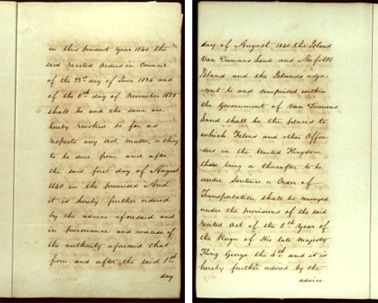 in this present Year 1840 the
said recited Orders in Council
of the 23rd day of June 1824 and
of the 6th day of November 1825
shall be and the same are
hereby revoked so far as
respects any act, matter, or thing
to be done from and after
the said first day of August
1840 in the premises And
it is hereby further ordered
by the advice aforesaid and
in pursuance and exercise of
the authority aforesaid that
from and after the said 1st
day
day of August 1840 the Island
Van Diemans Land and Norfolk
Island and the Islands adja-
cent to and comprised within
the Government of Van Diemans
Land shall be the places to
which Felons and other Offen-
ders in the United Kingdom
there being or thereafter to be
under Sentence or Order of
Transportation shall be conveyed
under the provisions of the said
recited Act of the 5th Year of
the Reign of His late Majesty
King George the 4th and it is
hereby further ordered by the
advice